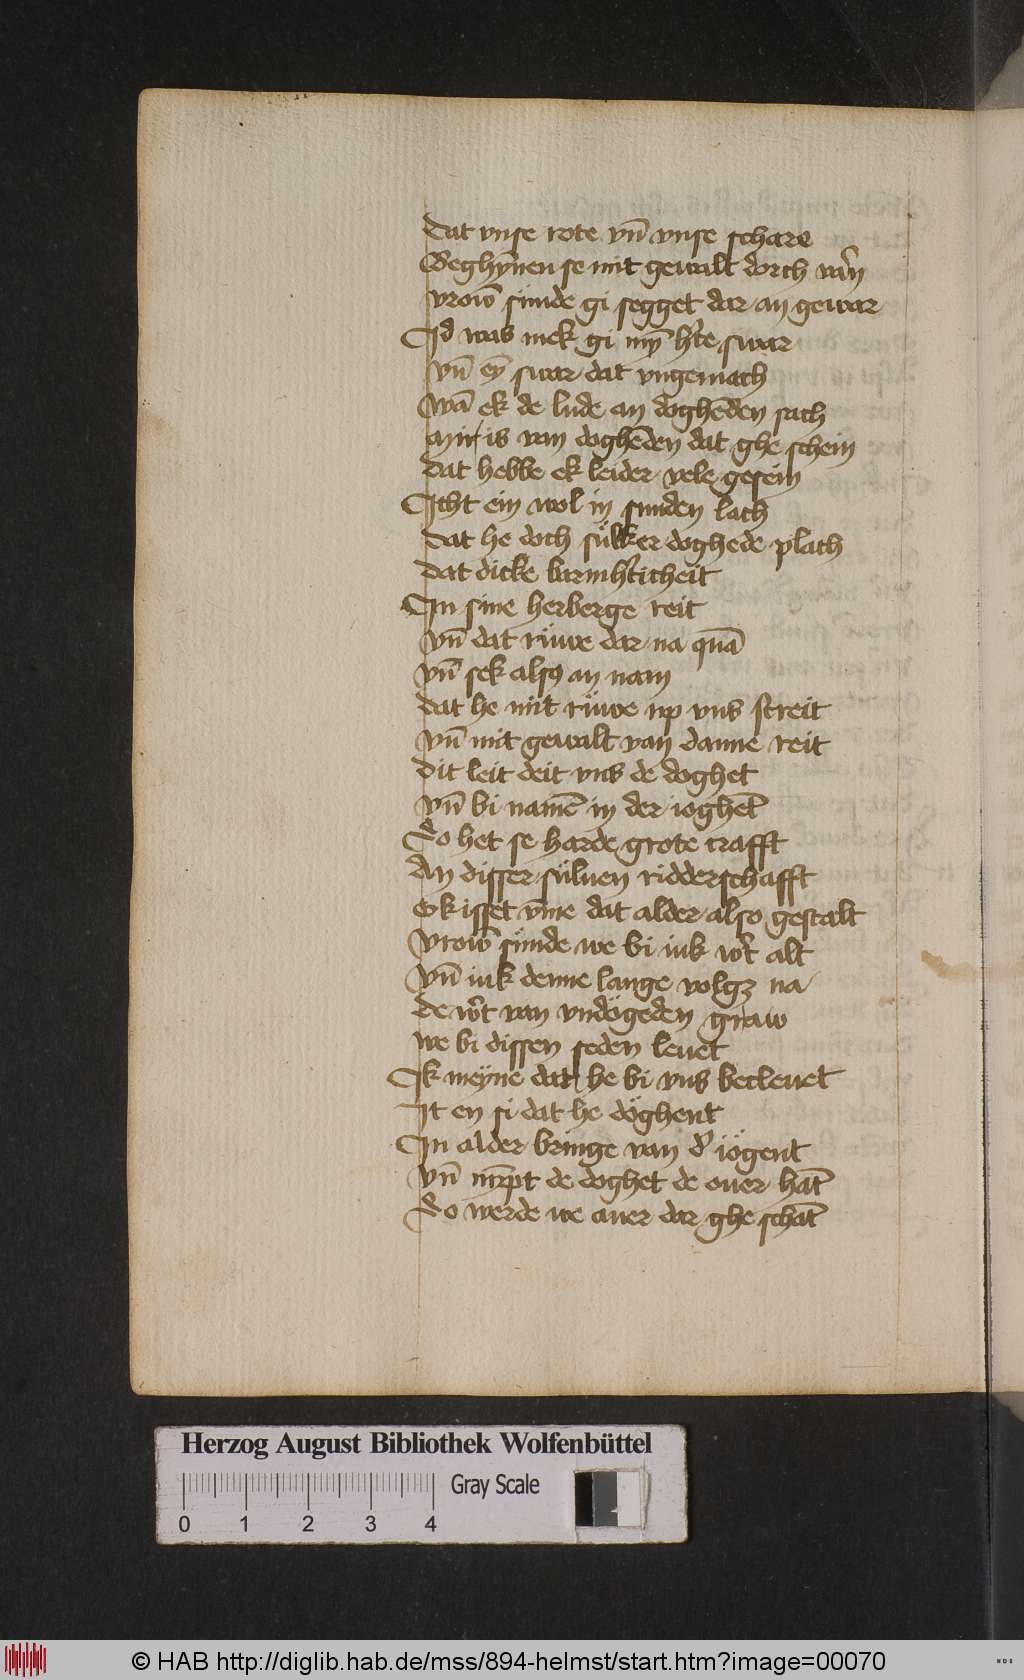 Dat vnse rote vn̄ vnse schare
Beghyn̄en se mit gewalt dorch varn̄
vrow̄ sunde gi segget dar an gewar
Id was mek gi myn̄ hte swar
vn̄ ey̅ swar dat vngemach
wā ek de lude an doghēden sach
Mir is van doghēden dat ghe schein
dat hebbe ek leider vele gesein
Icht ein wol in sunden lach
Dat he doch sülker doghede plach
Dat dicke barmhticheit
In sine herberge reit
vn̄ dat rüwe dar na quā
vn̄ sek also an nam
dat he mit rüwe up vns streit
vn̄ mit gewalt van danne reit
dit leit deit vns de doghet
vn̄ bi namē in der ioghet
So het se harde grote crafft
An disser süluen ridderschafft
Ek isset vm̄e dat alder also gestalt
vrow̄ sunde we bi iuk wt alt
vn̄ iuk denne lange volgꝫ na
de wt van vndögeden graw
we bi dissen seden leuet
Ik meyne dat he bi vns becleuet
It en si dat he döghent
In alder bringe van d' iögent
vn̄ de doghet de ouer hat
So werde we auer dar ghe schat
Herzog August Bibliothek Wolfenbüttel
Gray Scale
0 1 2 3 4
© HAB http://diglib.hab.de/mss/894-helmst/start.htm?image=00070